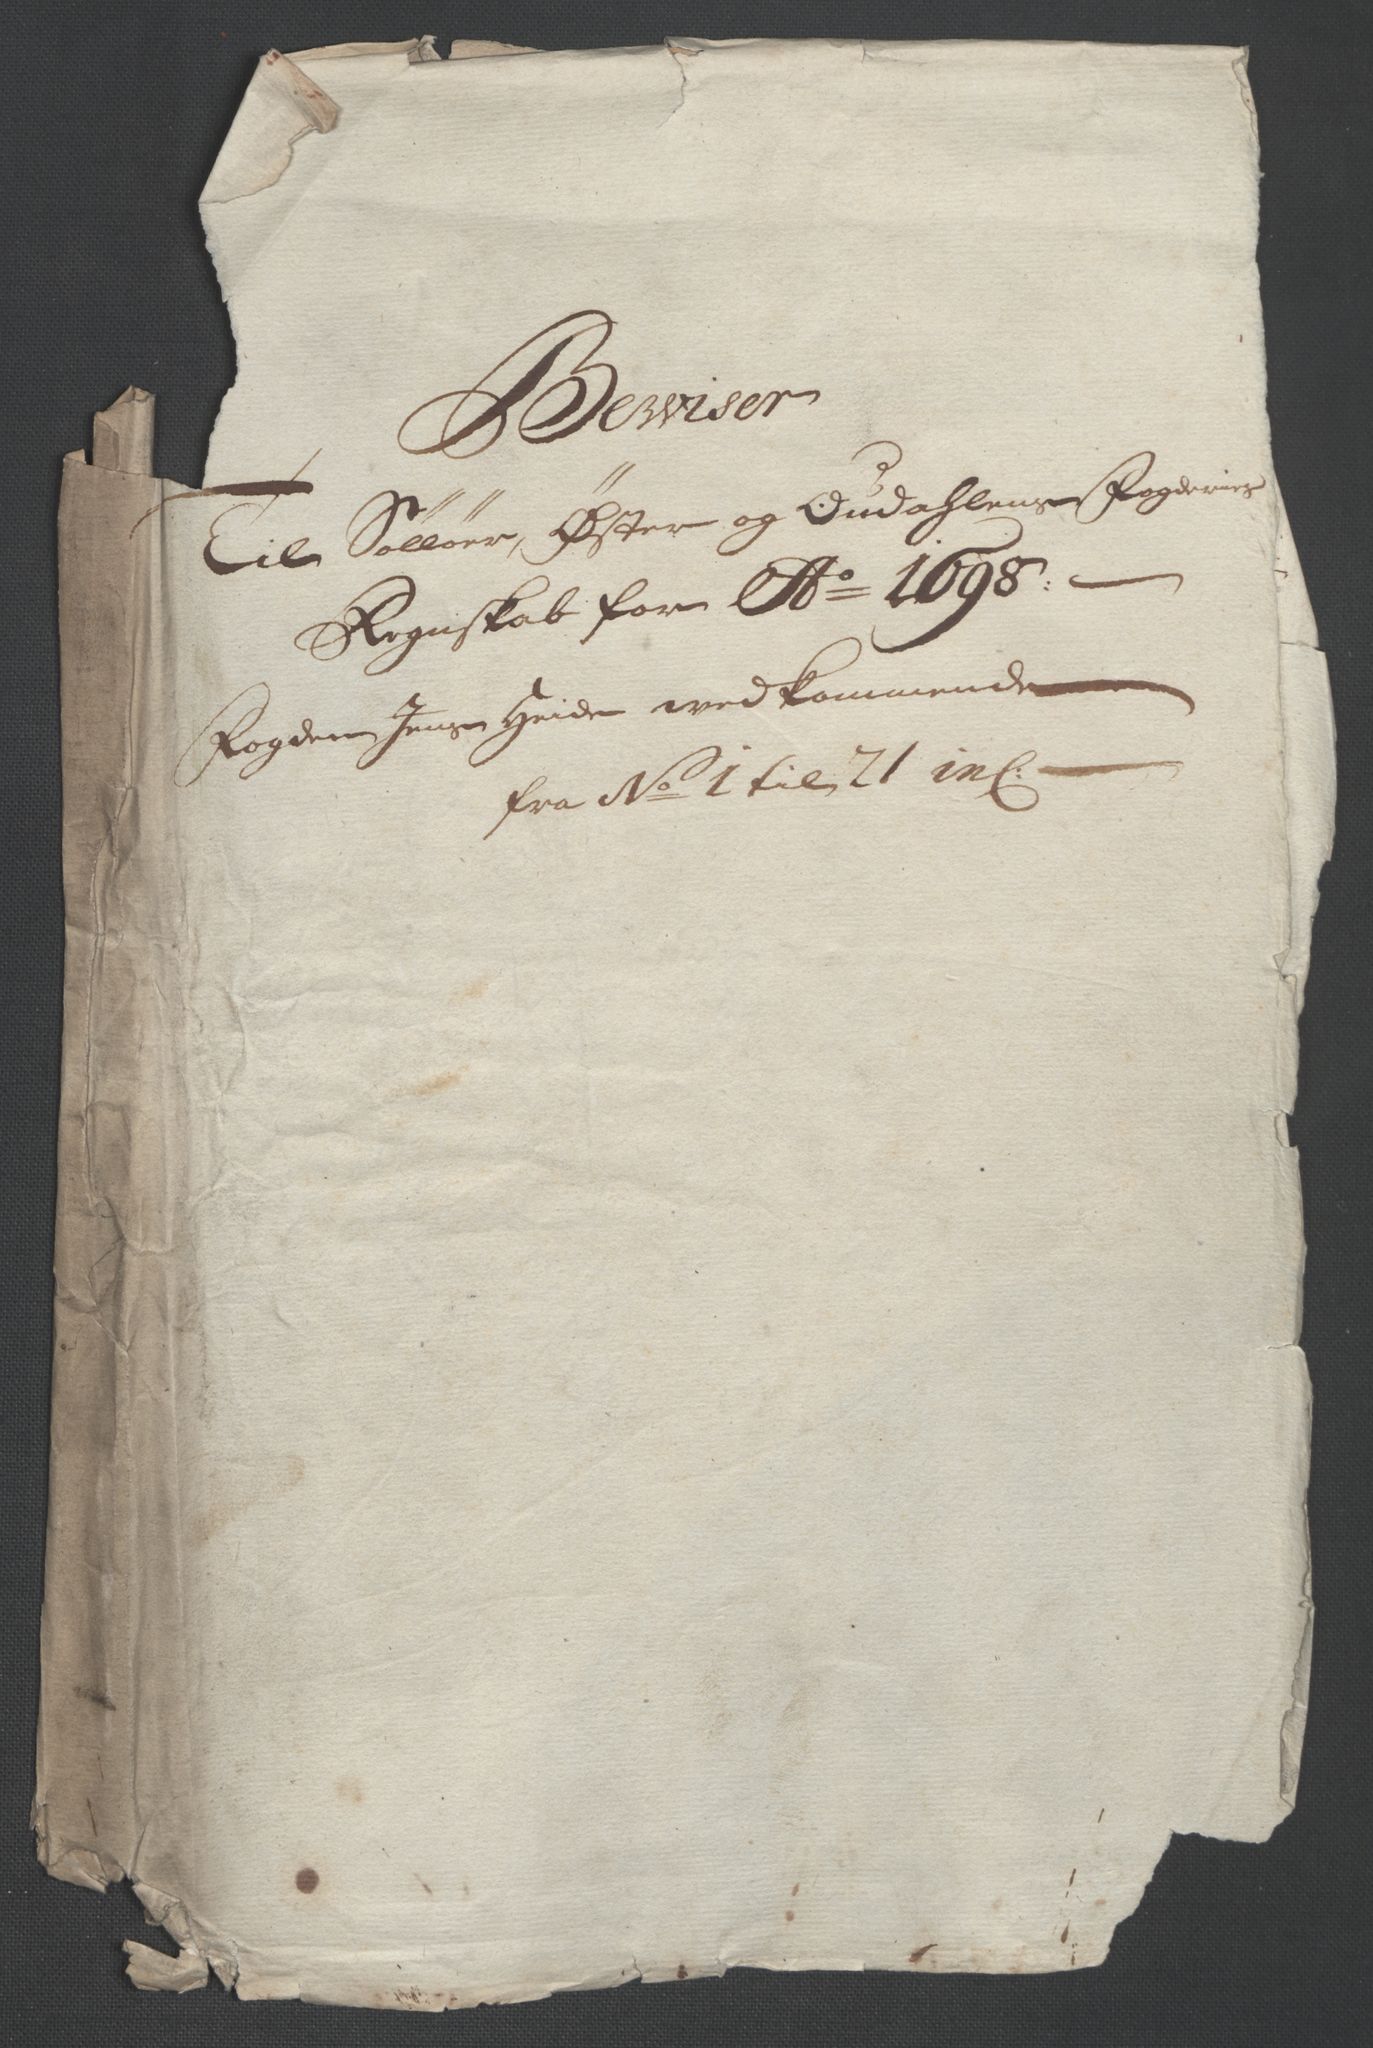 Bewiser
Til Sollöer, Öster og Oudahlens Fogderies
Regnskab for Ao 1698:
Fogden Jens Heide vedkommende
fra No 1 til 21 incl: